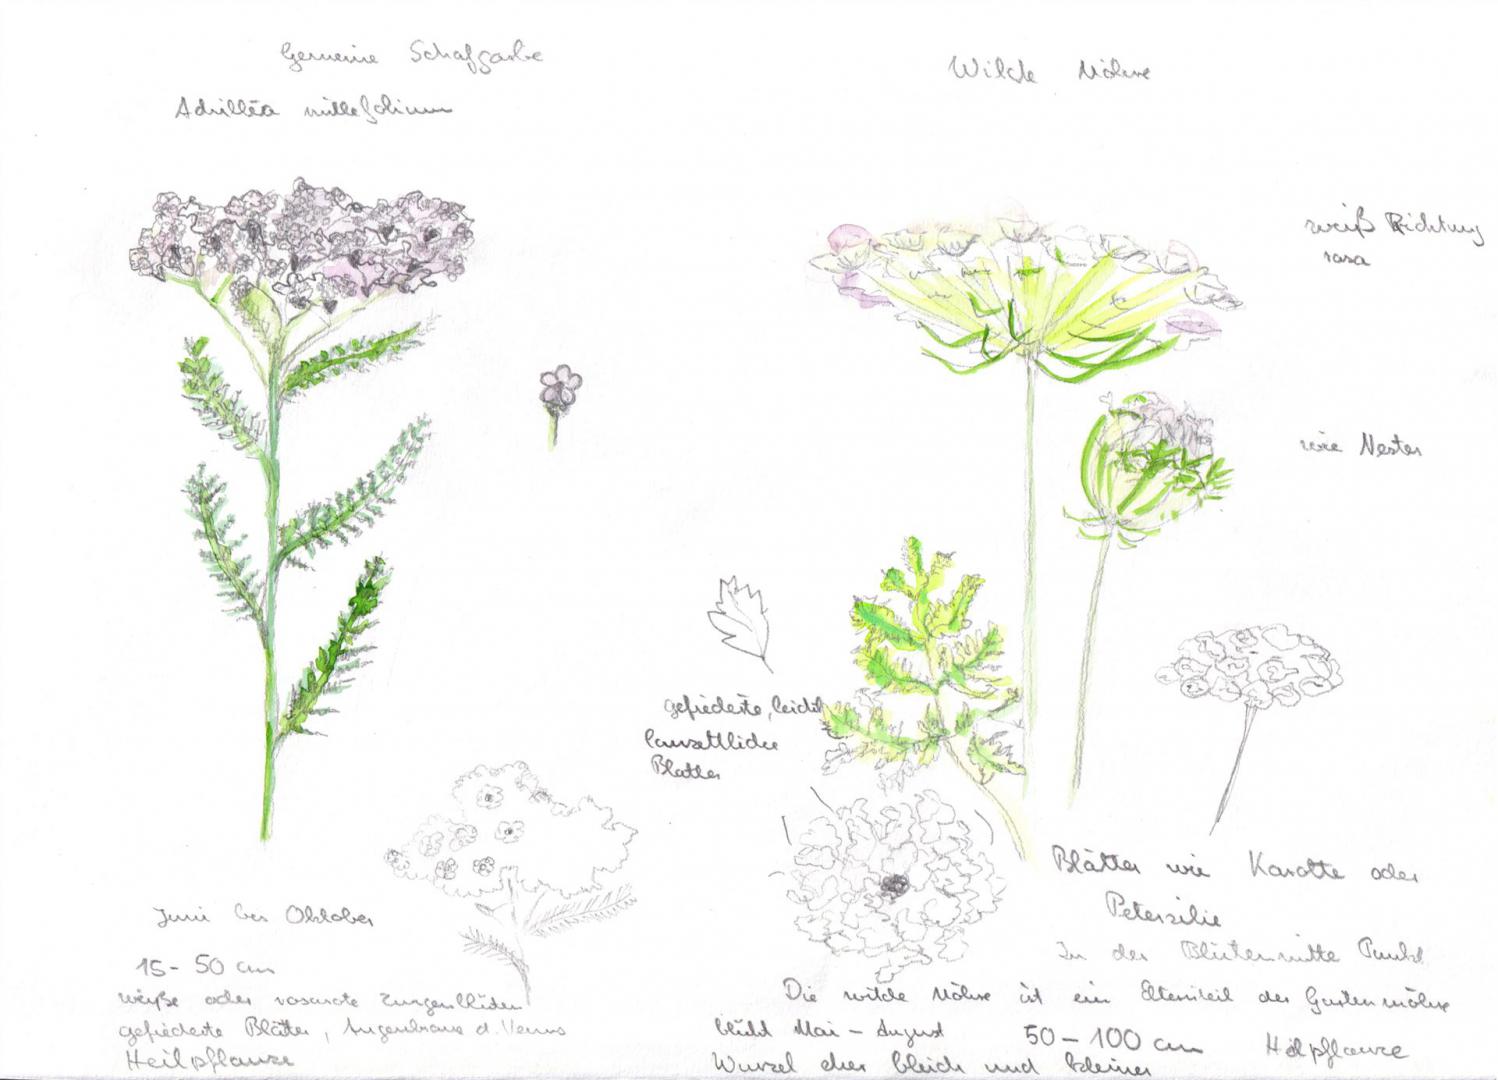 Gemeine Schafgarbe
Achillea millefolium
Juni bis Oktober
15 - 50 cm
weiße oder rosarote Zungenblüten
gefiederte Blätter, Augenbraue d. Venus
Heilpflanze
Wilde Möhre
weiß Richtung
rosa
wie Nester
gefiederte, leicht
lanzettliche
Blätter
Blätter wie Karotte oder
Petersilie
In der Blütenmitte Punkt
Die wilde Möhre ist ein Elternteil der Gartenmöhre
blüht Mai - August 50 - 100 cm Heilpflanze
Wurzel eher bleich und kleiner